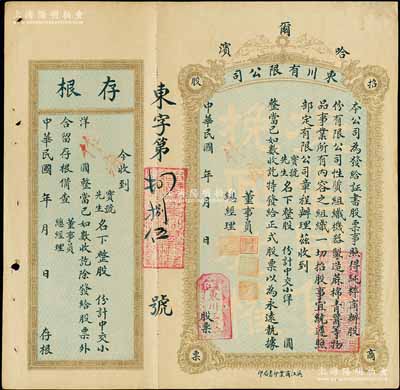 上海陽明拍賣
爾
哈
濱
東川有限公司
招
股
商
票
本公司為發給証書股票事
份有限公司性質組織機器製造蔴棉青等物
品事業所有內容之組織一切招股事宜統遵照
部定有限公司章程辦理茲收到
寶號
先生
名下整股
份計中交小洋
圓
整當已如數收訖特發給正式股票以為永遠執據
董事員
總經理
中華民國
年
月
日
股票
東字第
捌伍
號
存根
今收到
寶號
先生
名下整股
份計中交小
洋
圓整當已如數收訖除發給股票外
合留存根備查
董事員
總經理
中華民國
年
月
日
存根